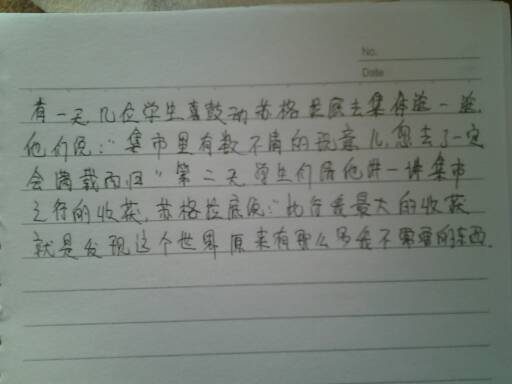 No.
Date
有一天几位学生喜鼓动苏格拉底去集市逛一逛.
他们说:"集市里有数不清的玩意儿,您去了一定
会满载而归"第二天学生们后他讲一讲集市
之行的收获,苏格拉底说:"此行我最大的收获
就是发现这个世界原来有那么多我不需要的东西.